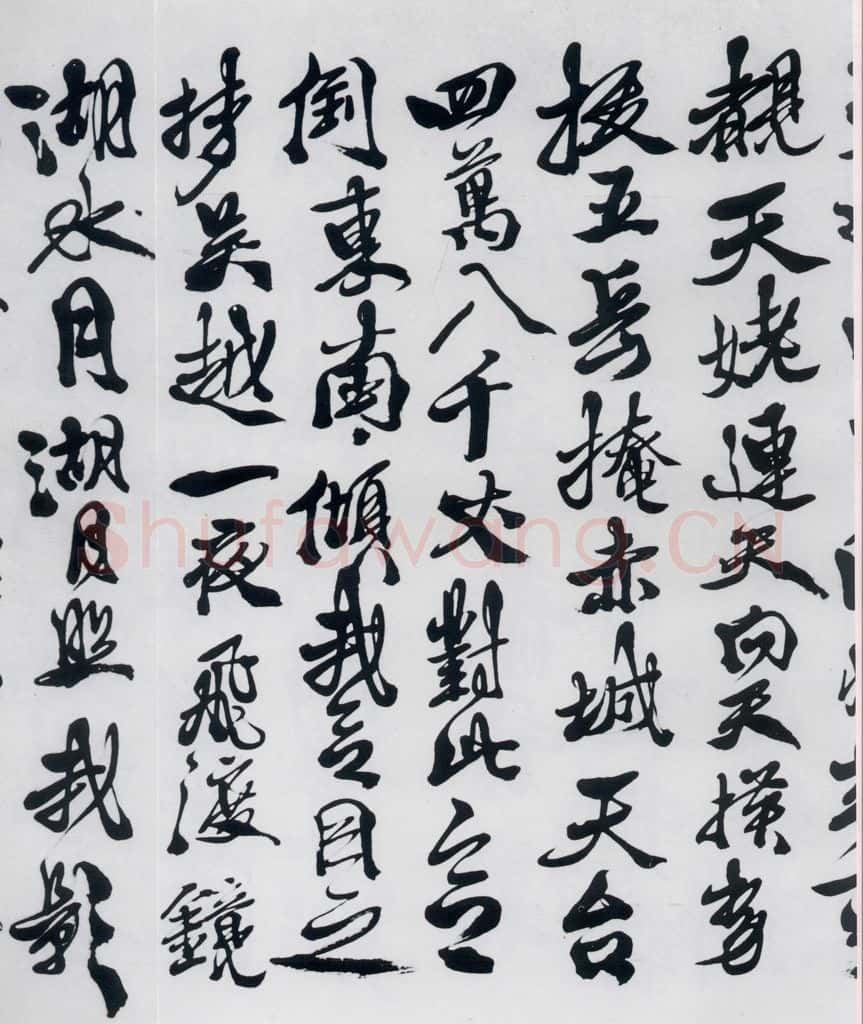 覩天姥連天向天橫勢
拔五岳掩赤城天台
四萬八千丈對此欲
倒東南傾我欲因之
夢吳越一夜飛渡鏡
湖水月湖月照我影
Shufawang.CN